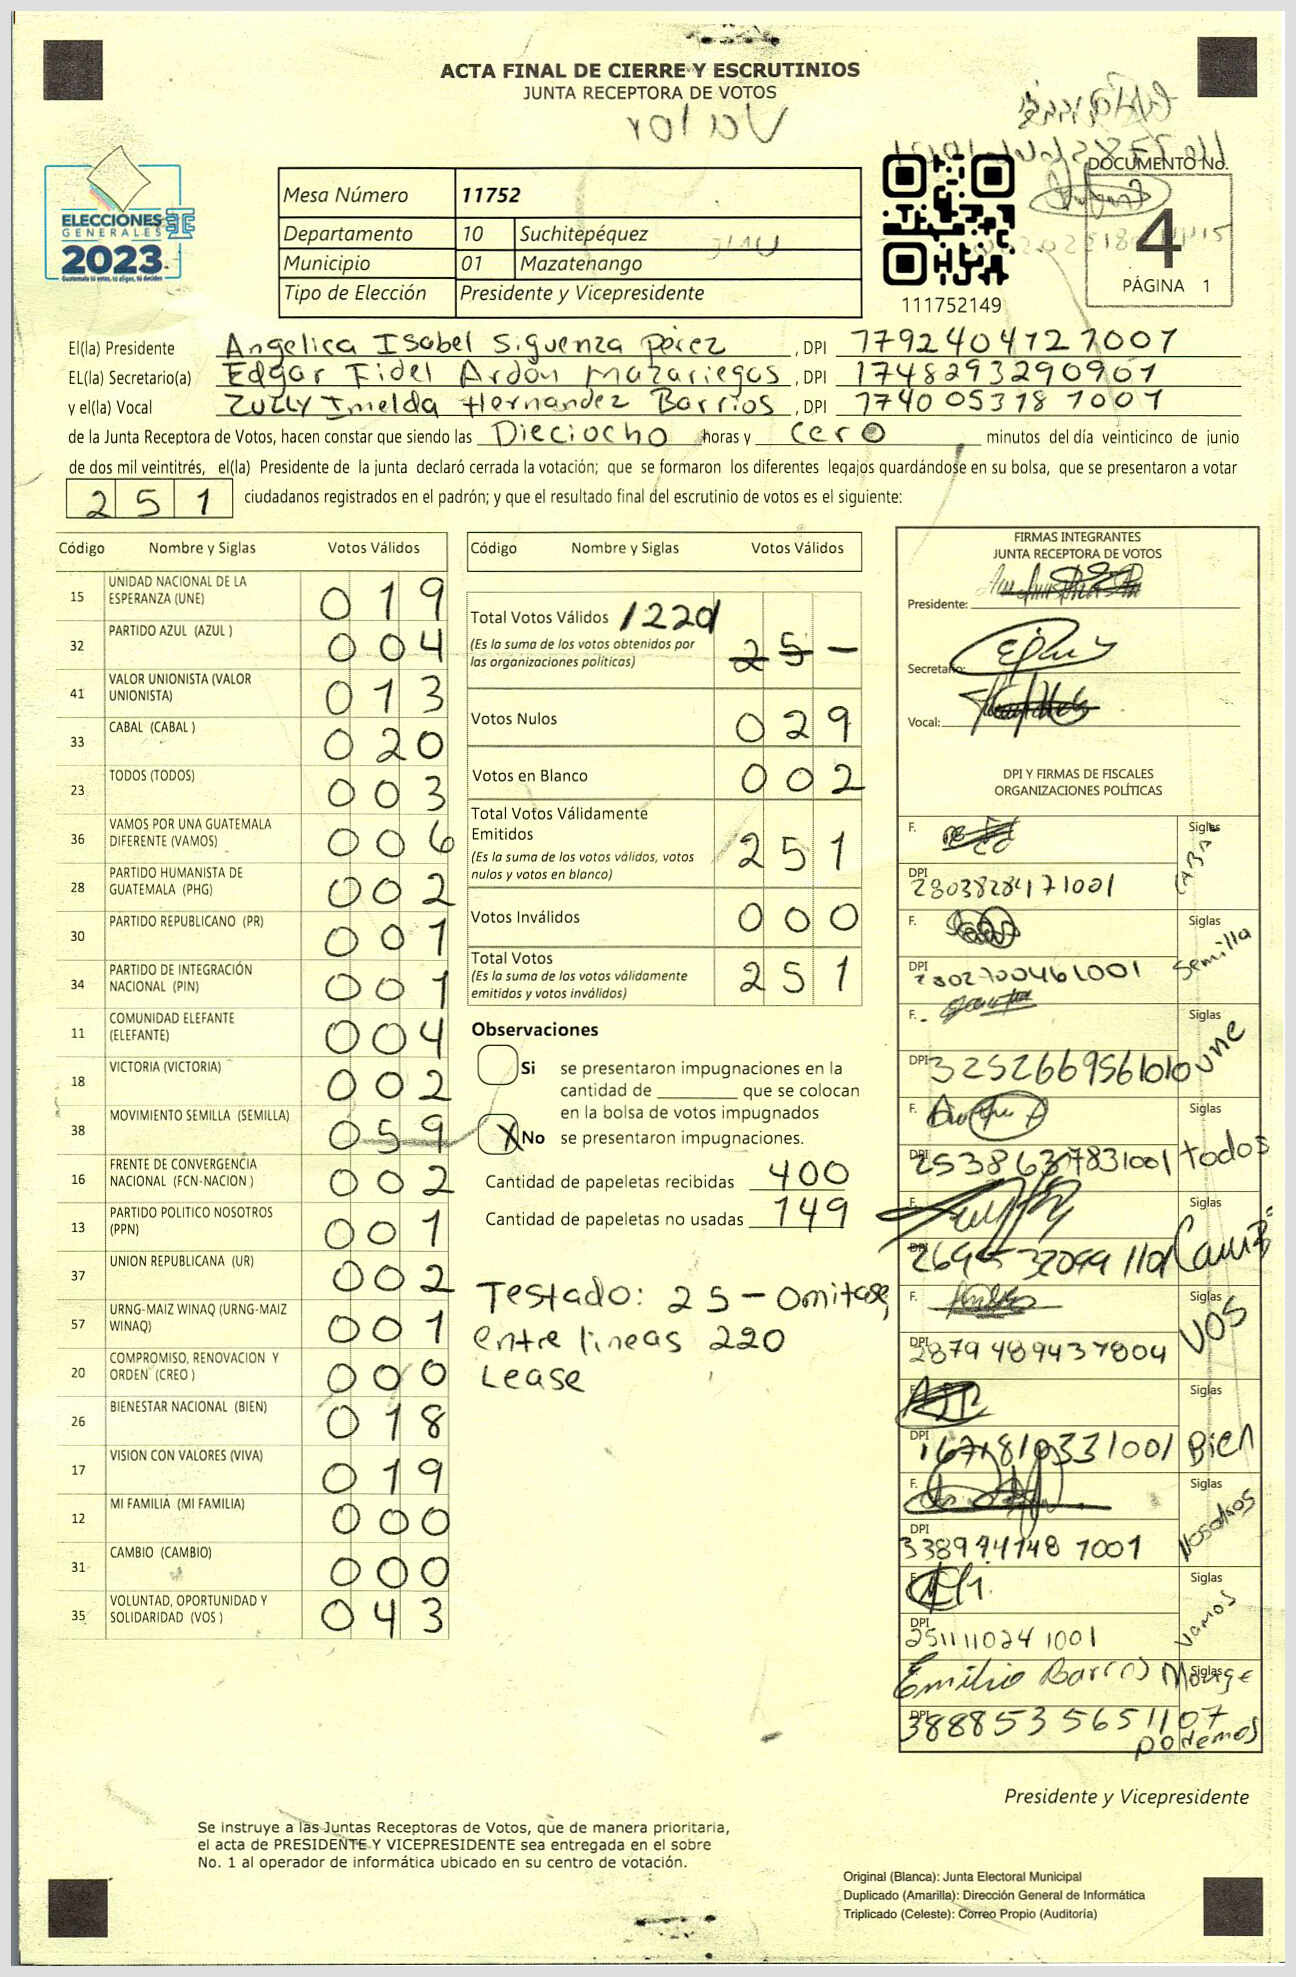 ACTA FINAL DE CIERRE Y ESCRUTINIOS
JUNTA RECEPTORA DE VOTOS
Valor
ELECCIONES
GENERALES
2023
Guatemala tú votas, tú eliges, tú decides
Mesa Número 11752
Departamento 10 Suchitepéquez
Municipio 01 Mazatenango
Tipo de Elección Presidente y Vicepresidente
111752149
DOCUMENTO No.
4
PÁGINA 1
El(la) Presidente Angelica Isabel Siguenza Pérez, DPI 7792404727007
EL(la) Secretario(a) Edgar Fidel Ardón Mazariegos, DPI 1748293290901
y el(la) Vocal Zully Imelda Hernandez Barrios, DPI 1740053781001
de la Junta Receptora de Votos, hacen constar que siendo las Dieciocho horas y cero minutos del día veinticinco de junio
de dos mil veintitrés, el(la) Presidente de la junta declaró cerrada la votación; que se formaron los diferentes legajos guardándose en su bolsa, que se presentaron a votar
251 ciudadanos registrados en el padrón; y que el resultado final del escrutinio de votos es el siguiente:
Código Nombre y Siglas Votos Válidos
15 UNIDAD NACIONAL DE LA ESPERANZA (UNE) 019
32 PARTIDO AZUL (AZUL ) 004
41 VALOR UNIONISTA (VALOR UNIONISTA) 013
33 CABAL (CABAL ) 020
23 TODOS (TODOS) 003
36 VAMOS POR UNA GUATEMALA DIFERENTE (VAMOS) 006
28 PARTIDO HUMANISTA DE GUATEMALA (PHG) 002
30 PARTIDO REPUBLICANO (PR) 001
34 PARTIDO DE INTEGRACIÓN NACIONAL (PIN) 001
11 COMUNIDAD ELEFANTE (ELEFANTE) 004
18 VICTORIA (VICTORIA) 002
38 MOVIMIENTO SEMILLA (SEMILLA) 059
16 FRENTE DE CONVERGENCIA NACIONAL (FCN-NACION ) 002
13 PARTIDO POLITICO NOSOTROS (PPN) 001
37 UNION REPUBLICANA (UR) 002
57 URNG-MAIZ WINAQ (URNG-MAIZ WINAQ) 001
20 COMPROMISO, RENOVACION Y ORDEN (CREO ) 000
26 BIENESTAR NACIONAL (BIEN) 018
17 VISION CON VALORES (VIVA) 019
12 MI FAMILIA (MI FAMILIA) 000
31 CAMBIO (CAMBIO) 000
35 VOLUNTAD, OPORTUNIDAD Y SOLIDARIDAD (VOS ) 043
Código Nombre y Siglas Votos Válidos
Total Votos Válidos /220/
(Es la suma de los votos obtenidos por
las organizaciones políticas) 25-
Votos Nulos 029
Votos en Blanco 002
Total Votos Válidamente
Emitidos
(Es la suma de los votos válidos, votos
nulos y votos en blanco) 251
Votos Inválidos 000
Total Votos
(Es la suma de los votos válidamente
emitidos y votos inválidos) 251
Observaciones
Si se presentaron impugnaciones en la
cantidad de ________ que se colocan
en la bolsa de votos impugnados
X No se presentaron impugnaciones.
Cantidad de papeletas recibidas 400
Cantidad de papeletas no usadas 149
Testado: 25- Omitase,
entre lineas 220
Lease
FIRMAS INTEGRANTES
JUNTA RECEPTORA DE VOTOS
Presidente:
Secretario:
Vocal:
DPI Y FIRMAS DE FISCALES
ORGANIZACIONES POLÍTICAS
F. Siglas CABAL
DPI 28038284171001
F. Siglas Semilla
DPI
F. Siglas une
DPI 3252669561010
F. Siglas todos
DPI 2538637831001
F. Siglas
DPI
F. Siglas VOS
DPI 2879489437804
F. Siglas Bien
DPI 1671810331001
F. Siglas Nosotros
DPI
F. Siglas Vamos
DPI 2511110241001
Emilio Barrios Monge Siglas
DPI 3888535651107
Podemos
Presidente y Vicepresidente
Se instruye a las Juntas Receptoras de Votos, que de manera prioritaria,
el acta de PRESIDENTE Y VICEPRESIDENTE sea entregada en el sobre
No. 1 al operador de informática ubicado en su centro de votación.
Original (Blanca): Junta Electoral Municipal
Duplicado (Amarilla): Dirección General de Informática
Triplicado (Celeste): Correo Propio (Auditoría)